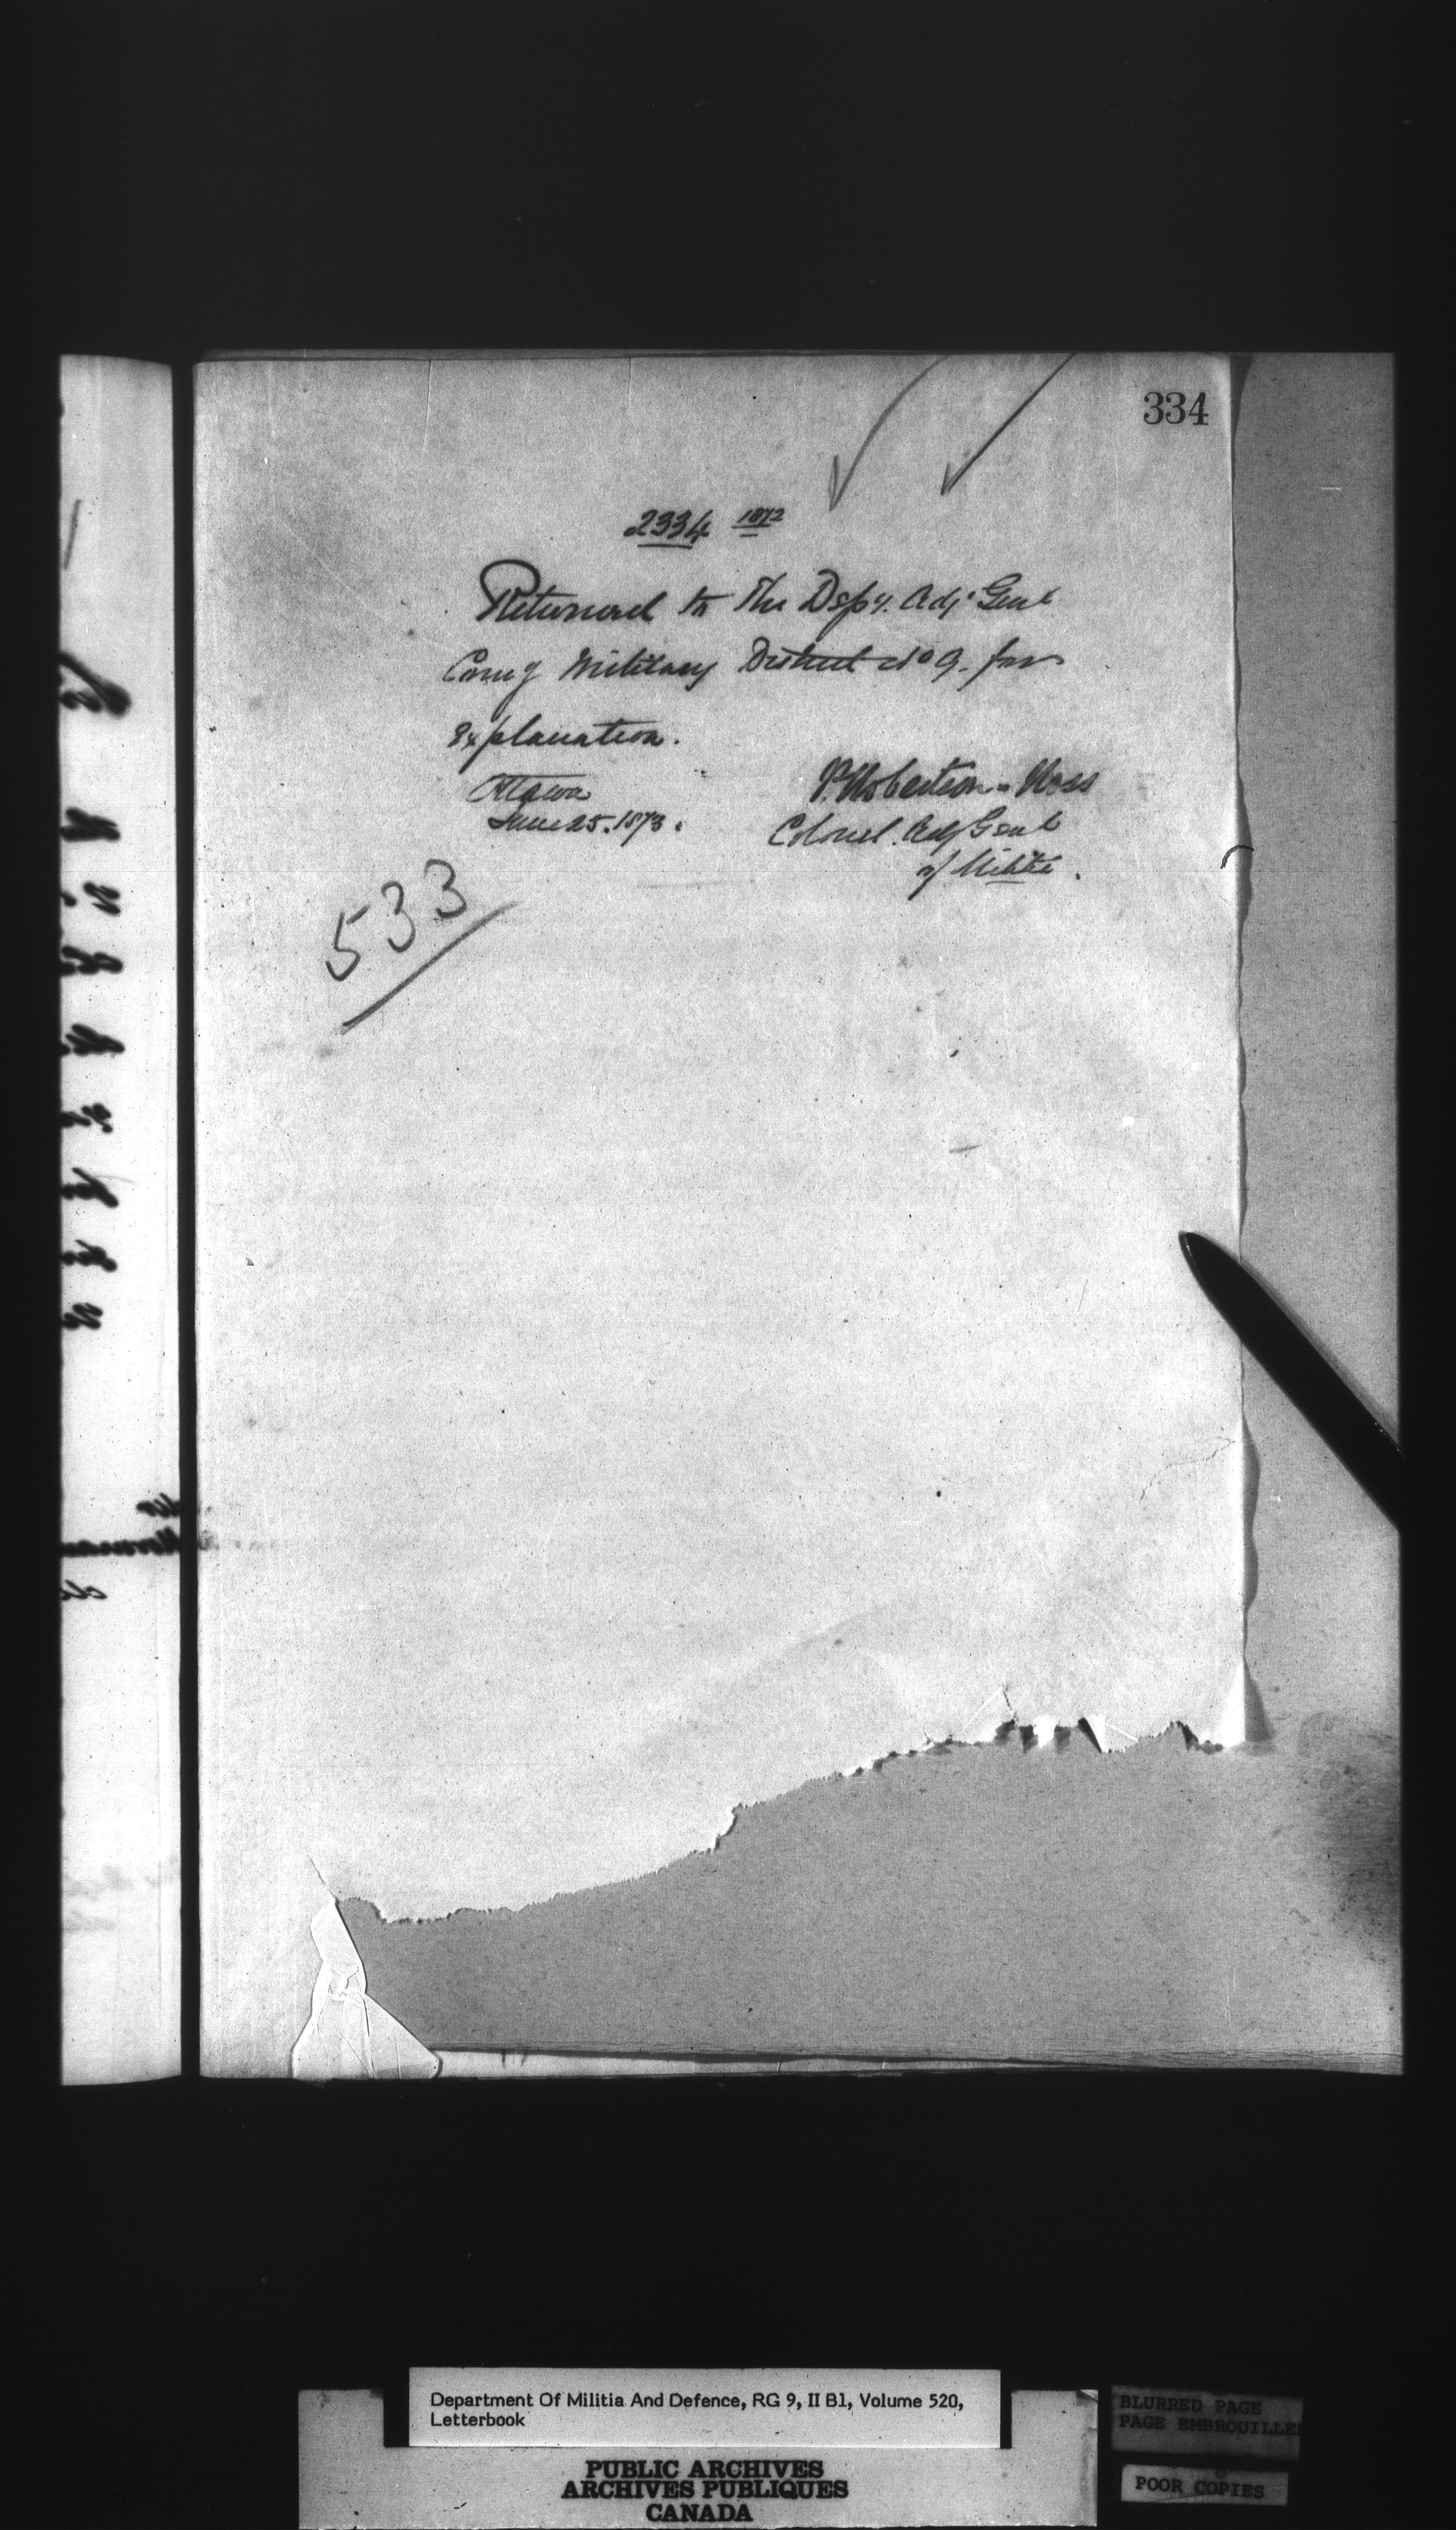 334
2334 1872
Returned to The Depy. Adj. Genl
Comg Military District No 9. for
Explanation.
Ottawa
June 25. 1873.
P. Robertson-Ross
Colonel. Adj Genl
of Militia.
533
Department Of Militia And Defence, RG 9, II B1, Volume 520,
Letterbook
PUBLIC ARCHIVES
ARCHIVES PUBLIQUES
CANADA
BLURRED PAGE
PAGE EMBROUILLE
POOR COPIES